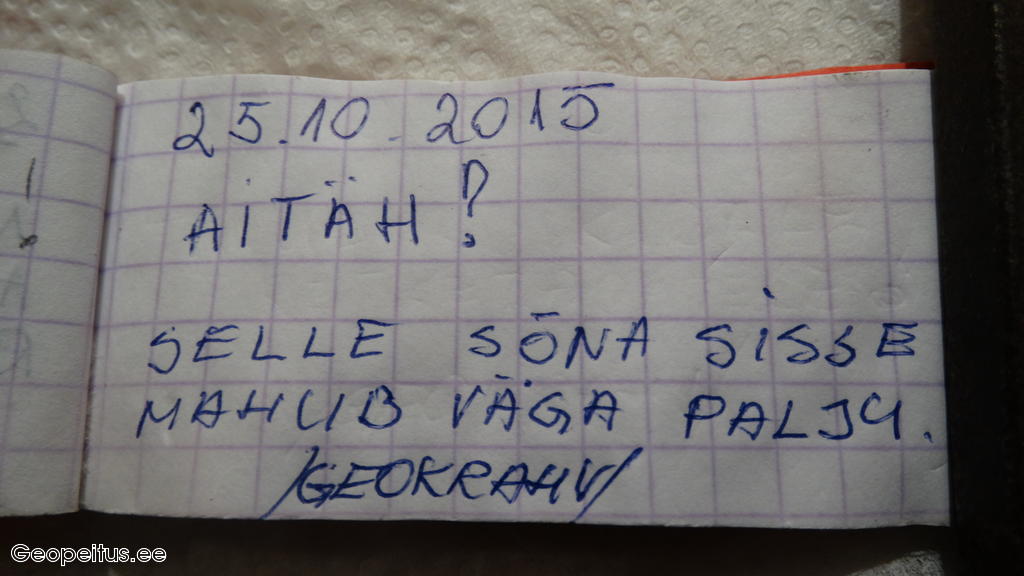 25.10.2015
AITÄH!
SELLE SÕNA SISSE
MAHUB VÄGA PALJU.
/GEOKRAHV/
Geopeitus.ee